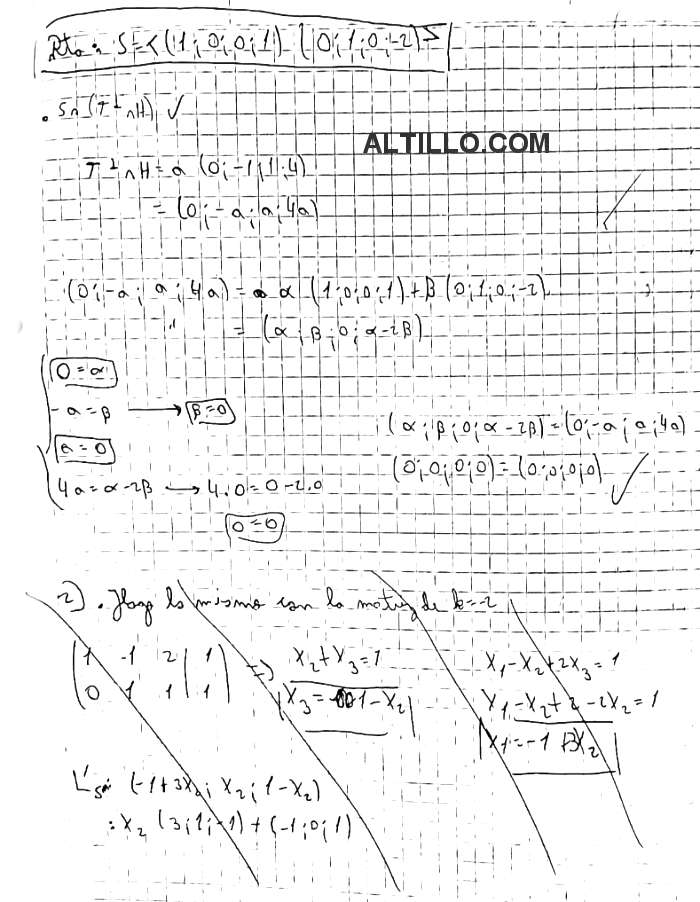 Rta: S=<(1;0;0;1) (0;1;0;-2)>
. S∩(T⊥∩H) ✓
ALTILLO.COM
T⊥∩H = a (0;-1;1;4)
= (0;-a;a;4a)
(0;-a; a;4a) = α (1;0;0;1)+β (0;1;0;-2)
" = (α;β;0;α-2β)
0=α
-a=β → β=0
a=0
4a=α-2β → 4.0=0-2.0
0=0
(α;β;0;α-2β)=(0;-a;a;4a)
(0;0;0;0)=(0;0;0;0)
2). Hago lo mismo con la matriz de k=-2
1 -1 2 | 1
0 1 1 | 1
⇒ X₂+X₃=1
X₃= 1-X₂
X₁-X₂+2X₃=1
X₁-X₂+2-2X₂=1
X₁=-1+3X₂
(-1+3X₂; X₂; 1-X₂)
: X₂ (3;1;-1)+(-1;0;1)